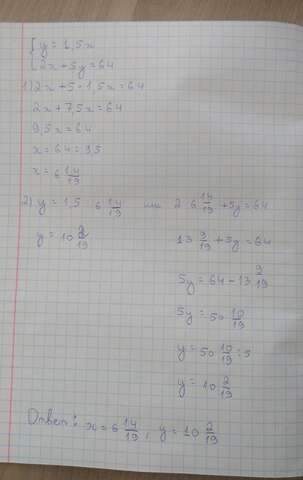 { y = 1,5x
{ 2x + 5y = 64
1) 2x + 5 · 1,5x = 64
2x + 7,5x = 64
9,5x = 64
x = 64 : 9,5
x = 6 14/19
2) y = 1,5 · 6 14/19 или 2 · 6 14/19 + 5y = 64
y = 10 2/19 13 9/19 + 5y = 64
5y = 64 - 13 9/19
5y = 50 10/19
y = 50 10/19 : 5
y = 10 2/19
Ответ: x = 6 14/19, y = 10 2/19